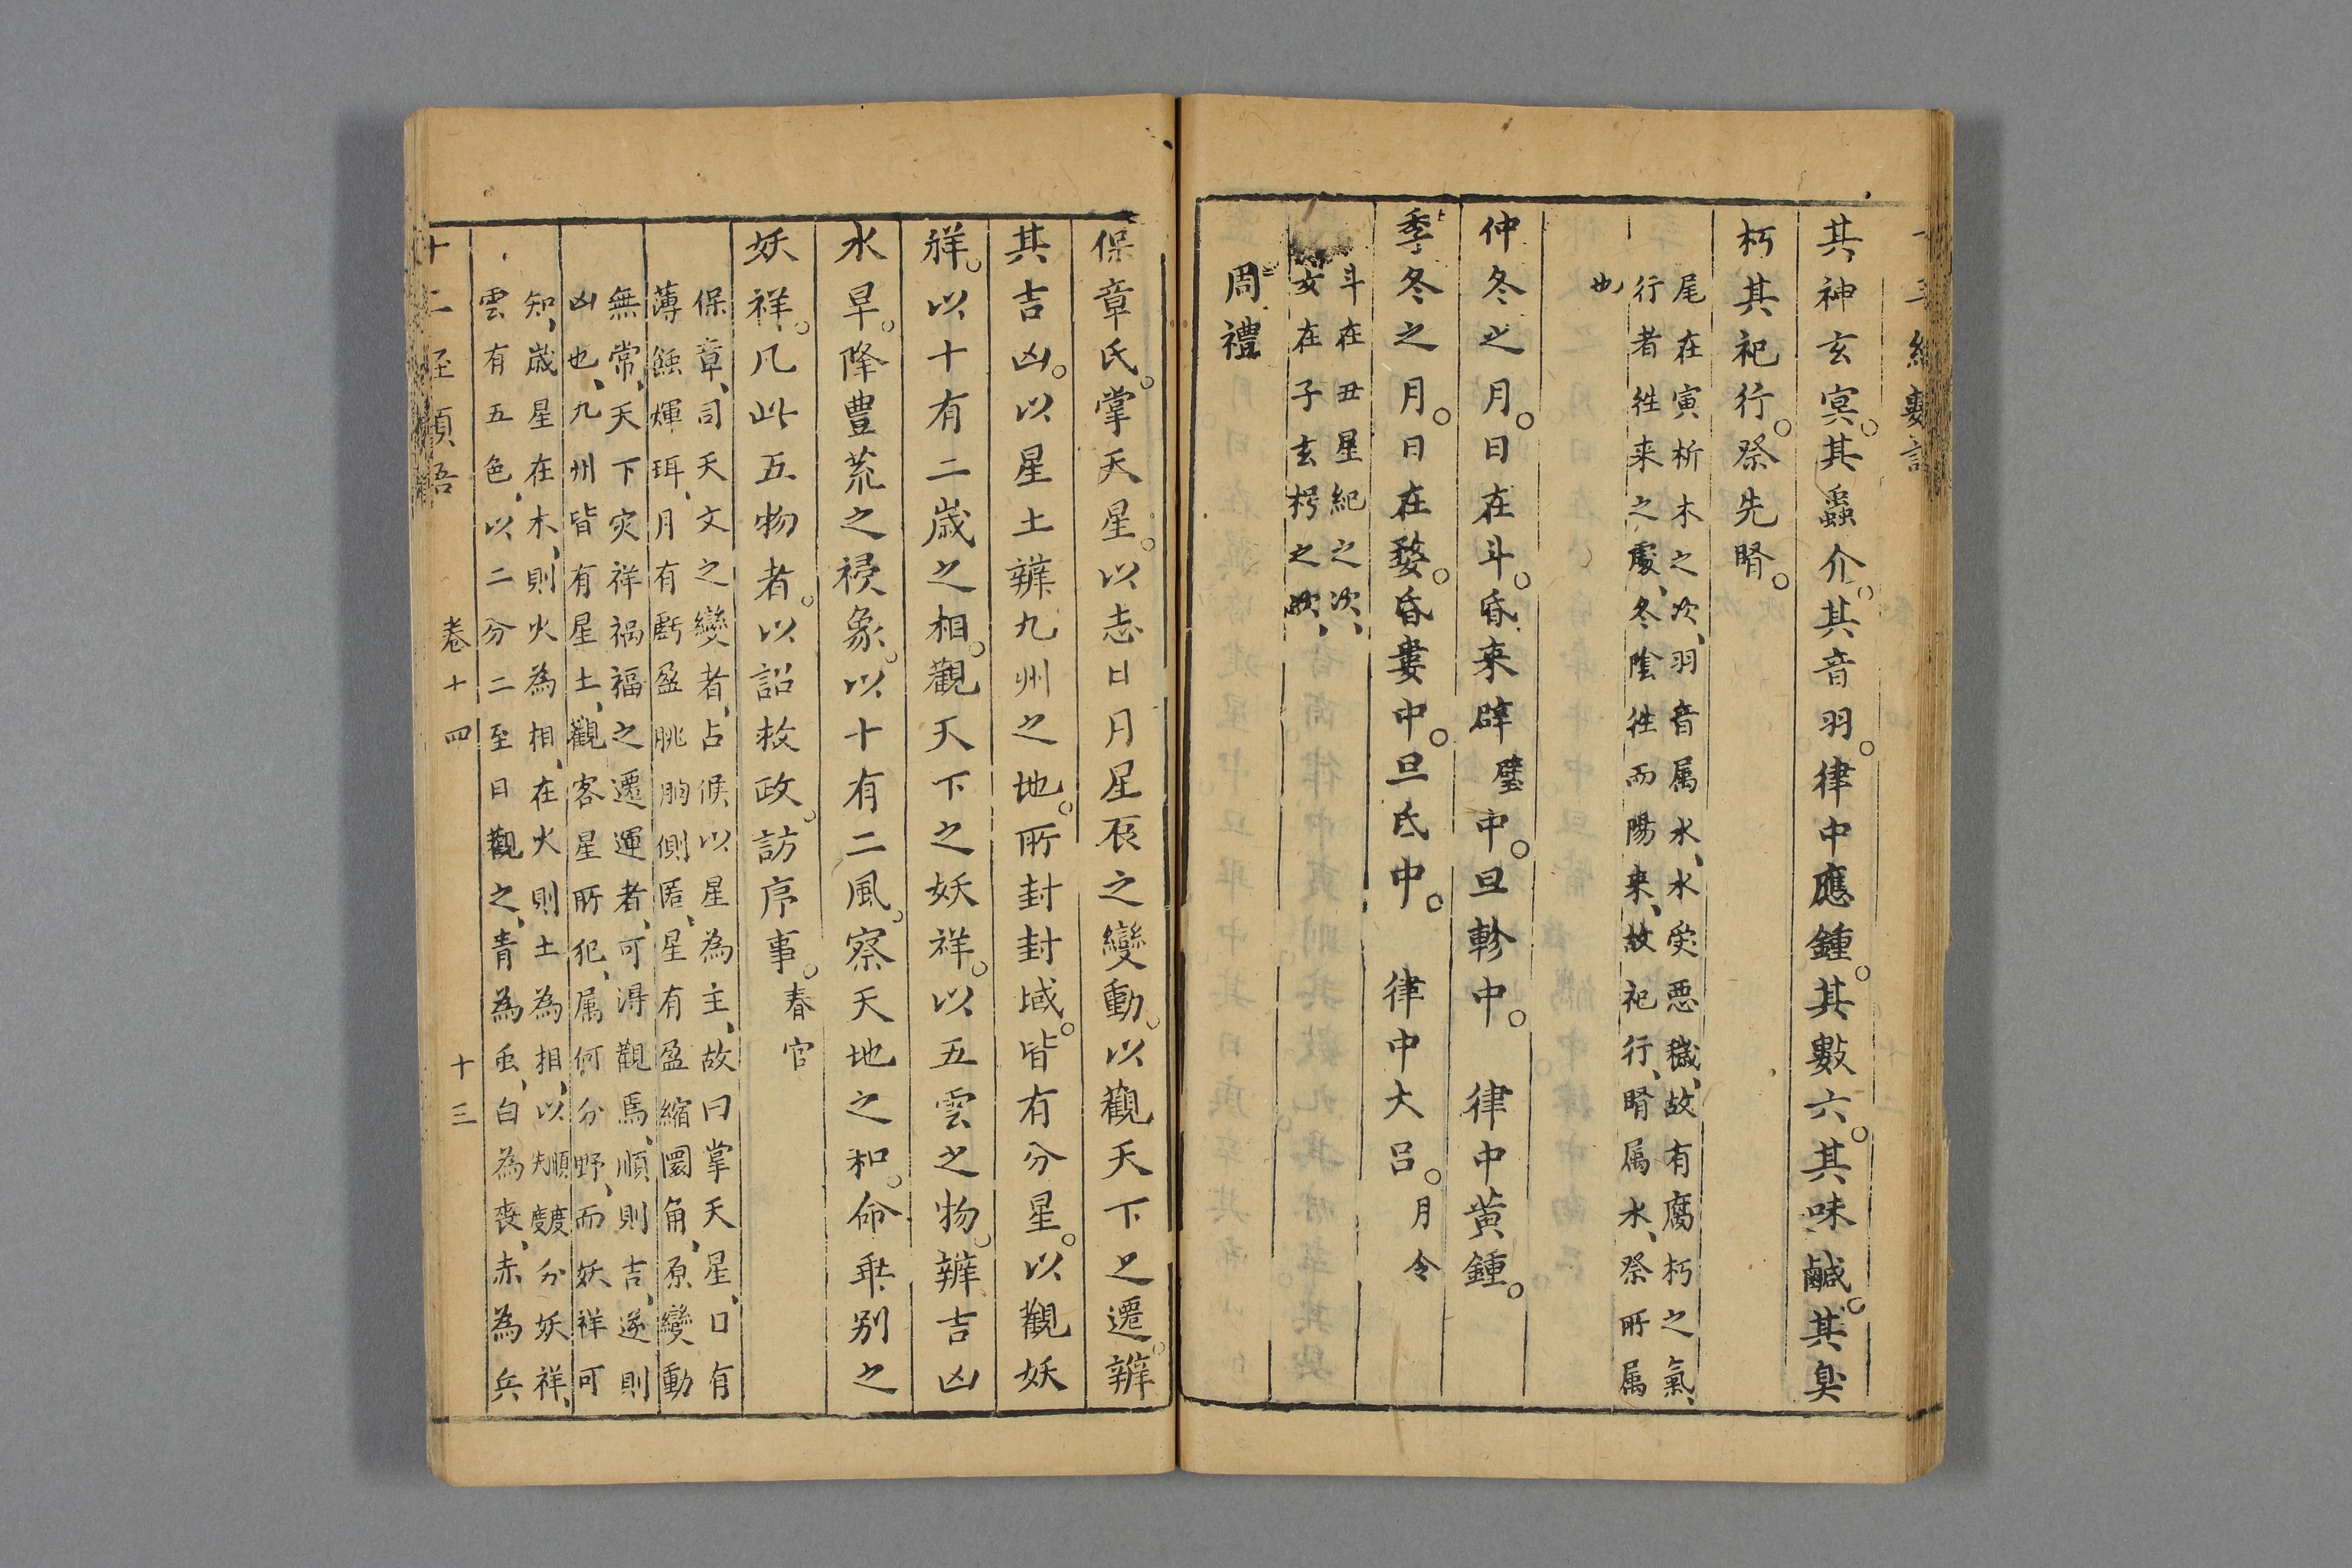 其神玄冥。其蟲介。其音羽。律中應鍾。其數六。其味鹹。其臭
朽其祀行。祭先腎。
尾在寅析木之次、羽音属水、水受惡穢、故有腐朽之氣、
行者徃来之處、冬陰徃而陽来、故祀行、腎属水、祭所属
也
仲冬之月。日在斗。昏東辟璧中。旦軫中。 律中黃鍾。
季冬之月。日在婺。昏婁中。旦氐中。 律中大呂。月令
斗在丑星紀之次、
女在子玄枵之次、
周禮
保章氏。掌天星。以志日月星辰之變動。以觀天下之遷。辨
其吉凶。以星土辨九州之地。所封封域。皆有分星。以觀妖
祥。以十有二歲之相。觀天下之妖祥。以五雲之物。辨吉凶
水旱。降豊荒之祲象。以十有二風。察天地之和。命乖別之
妖祥。凡此五物者。以詔救政。訪序事。春官
保章、司天文之變者、占候以星為主、故曰掌天星、日有
薄蝕煇珥、月有虧盈朓朒側匿、星有盈縮圜角、原變動
無常、天下灾祥禍福之遷運者、可淂觀焉、順則吉、逆則
凶也、九州皆有星土、觀客星所犯、属何分野、而妖祥可
知、歲星在木、則火為相、在火則土為相、以順度失度分妖祥、
雲有五色、以二分二至日觀之、青為虫、白為喪、赤為兵
卷十四 十三